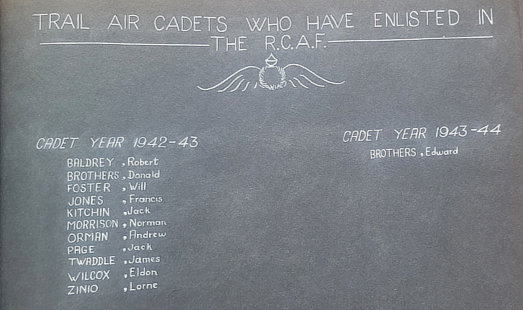 TRAIL AIR CADETS WHO HAVE ENLISTED IN
THE R.C.A.F.
CADET YEAR 1942-43
BALDREY, Robert
BROTHERS, Donald
FOSTER, Will
JONES, Francis
KITCHIN, Jack
MORRISON, Norman
ORMAN, Andrew
PAGE, Jack
TWADDLE, James
WILCOX, Eldon
ZINIO, Lorne
CADET YEAR 1943-44
BROTHERS, Edward